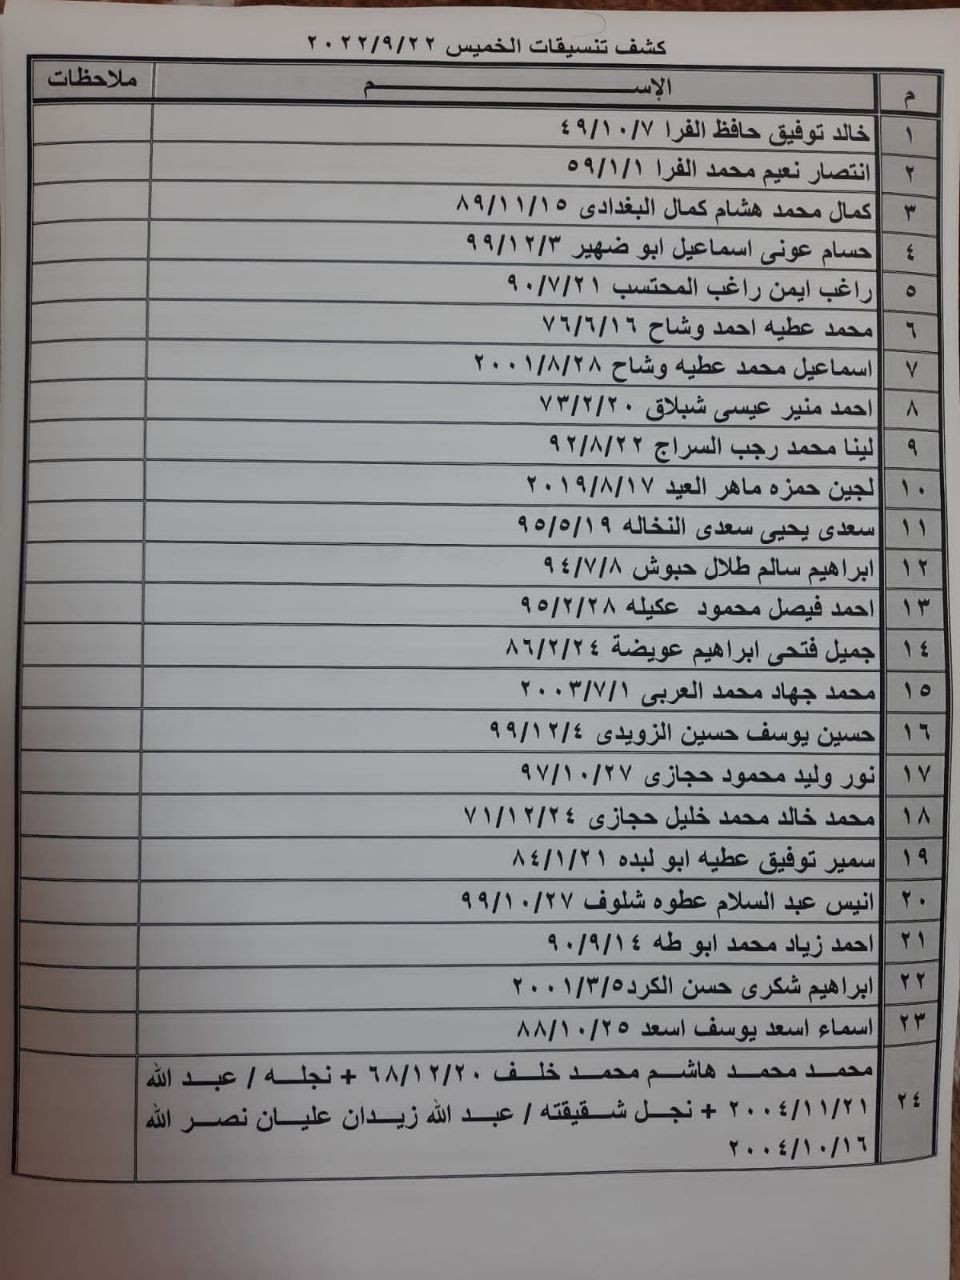 كشف تنسيقات الخميس ٢٠٢٢/٩/٢٢
م الإســـــــــــم ملاحظات
١ خالد توفيق حافظ الفرا ٤٩/١٠/٧
٢ انتصار نعيم محمد الفرا ٥٩/١/١
٣ كمال محمد هشام كمال البغدادى ٨٩/١١/١٥
٤ حسام عونى اسماعيل ابو ضهير ٩٩/١٢/٣
٥ راغب ايمن راغب المحتسب ٩٠/٧/٢١
٦ محمد عطيه احمد وشاح ٧٦/٦/١٦
٧ اسماعيل محمد عطيه وشاح ٢٠٠١/٨/٢٨
٨ احمد منير عيسى شبلاق ٧٣/٢/٢٠
٩ لينا محمد رجب السراج ٩٢/٨/٢٢
١٠ لجين حمزه ماهر العيد ٢٠١٩/٨/١٧
١١ سعدى يحيى سعدى النخاله ٩٥/٥/١٩
١٢ ابراهيم سالم طلال حبوش ٩٤/٧/٨
١٣ احمد فيصل محمود عكيله ٩٥/٢/٢٨
١٤ جميل فتحى ابراهيم عويضة ٨٦/٢/٢٤
١٥ محمد جهاد محمد العربى ٢٠٠٣/٧/١
١٦ حسين يوسف حسين الزويدى ٩٩/١٢/٤
١٧ نور وليد محمود حجازى ٩٧/١٠/٢٧
١٨ محمد خالد محمد خليل حجازى ٧١/١٢/٢٤
١٩ سمير توفيق عطيه ابو لبده ٨٤/١/٢١
٢٠ انيس عبد السلام عطوه شلوف ٩٩/١٠/٢٧
٢١ احمد زياد محمد ابو طه ٩٠/٩/١٤
٢٢ ابراهيم شكرى حسن الكرد٢٠٠١/٣/٥
٢٣ اسماء اسعد يوسف اسعد ٨٨/١٠/٢٥
٢٤ محمد محمد هاشم محمد خلف ٦٨/١٢/٢٠ + نجله / عبد الله
٢٠٠٤/١١/٢١ + نجل شقيقته / عبد الله زيدان عليان نصر الله
٢٠٠٤/١٠/١٦